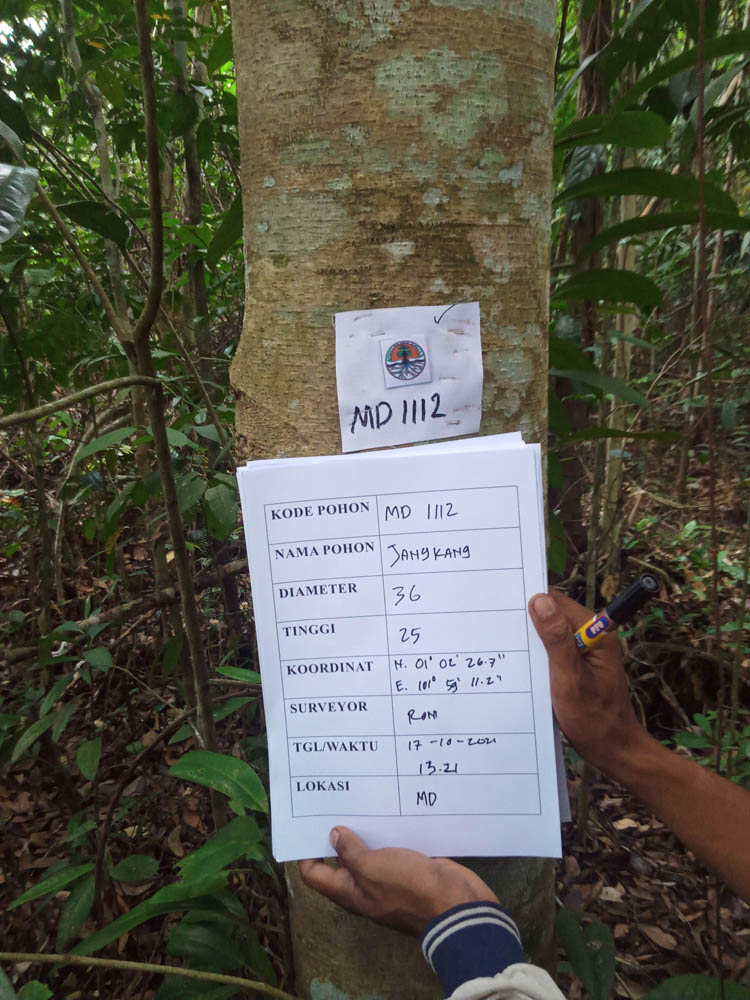 MD 1112
KODE POHON MD 1112
NAMA POHON JANGKANG
DIAMETER 36
TINGGI 25
KOORDINAT N. 01° 02' 26.7"
E. 101° 59' 11.2"
SURVEYOR RONI
TGL/WAKTU 17-10-2021
13.21
LOKASI MD